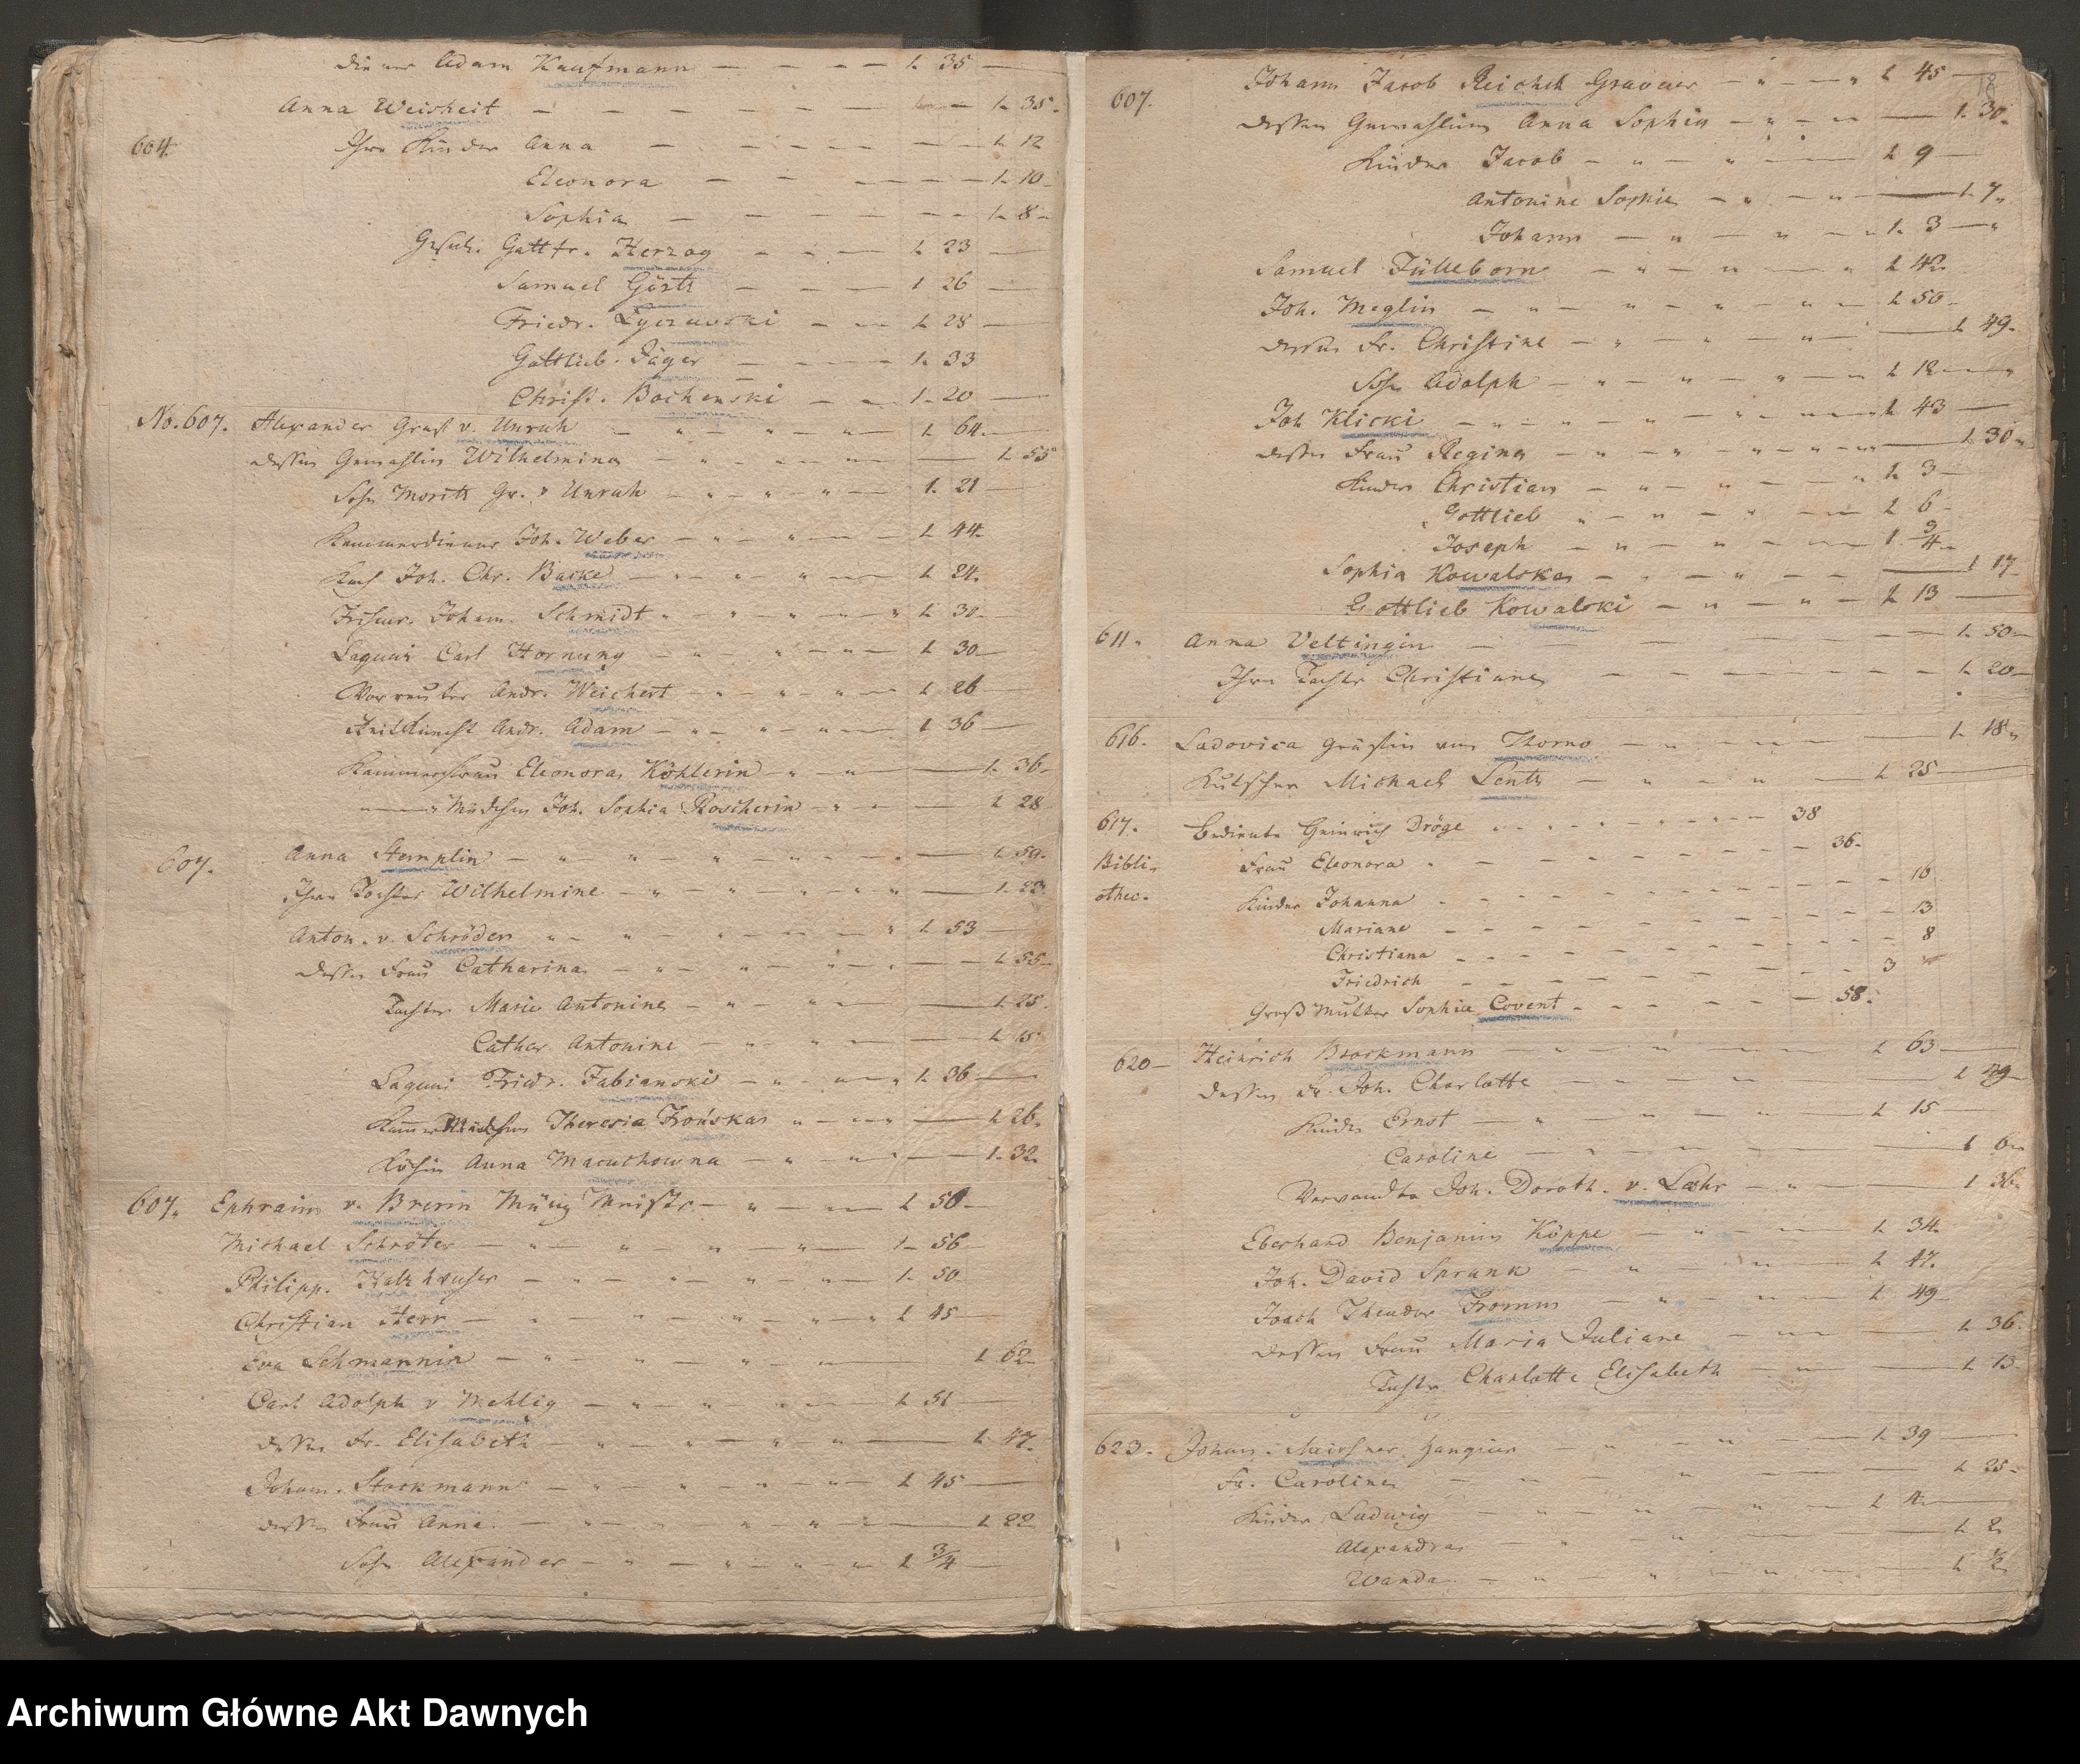 Diener Adam Kaufmann — — — — 1. 35 —
Anna Weisheit — — — — 1. 35.
604. Ihre Kinder Anna — — — — 1. 12
Eleonora — — — — 1. 10
Sophia — — — — 1. 8
Gottfr. Herzog — — — 1 23 —
Samuel — — — 1 26 —
Friedr. — — — 1. 28 —
Gottlieb. Jäger — — — 1. 33
Christ. Bochenski — — 1. 20 —
No. 607. Alexander Graf v. Unruh — " — " — 1. 64. —
dessen Gemahlin Wilhelmina — " — " — 1. 55
Sohn Moritz Gr. v Unruh — " — " — 1. 21 —
Kammerdiener Joh. Weber — " — " — 1. 44.
Koch Joh. Chr. Backe — " — " — 1. 24.
Friseur. Johann. Schmidt " — " — " 1. 30 —
Laquai Carl Hornung — " — " — 1. 30 —
Vorreuter Andr. Weichert — " — " — 1. 26 —
Reitknecht Andr. Adam — " — " — 1 36 —
Kammerfrau Eleonora Köhlerin — " — " — 1. 36
— " Mädchen Joh. Sophia Roscherin — " — 1. 28
607. Anna Stemplin — " — " — " — 1. 59.
Ihre Tochter Wilhelmine — " — " — 1. 23
Anton. v. Schröder " — " — " — 1. 53 —
dessen Frau Catharina — " — " — 1. 55
Tochter Marie Antonine — " — " — 1. 25.
Cathar. Antonine — " — " — 1. 15
Laquai Friedr. Fabianski — " — " 1. 36 —
Theresia — " — " — 1. 26.
Köchin Anna Macuchowna — " — " — 1. 32.
607. Ephraim v. Brenn Münz Meister — " — 1. 50 —
Michael Schröter — " — " — " — 1. 56
Philipp. — " — " — " — 1. 50
Christian Herr — " — " — " 1. 45 —
Eva — " — " — " — 1. 62.
Carl Adolph v Mehlig — " — " — 1. 51 —
dessen Fr. Elisabeth — " — " — 1. 47.
Johann. Stockmann — " — " — " 1. 45 —
dessen Frau Anna. — " — " — " — 1. 22
Sohn Alexander — " — " — " — 1 3/4 —
18
607. Johann Jacob Reichel Graveur — " — " 1. 45 —
dessen Gemahlin Anna Sophia — " — " — 1. 30.
Kinder Jacob — " — " — 1. 9 —
Antonine Sophie — " — " — 1. 7.
Johann — " — " — " 1. 3 —
Samuel Fülleborn — " — " — " 1. 42.
Joh. Meglin — " — " — " — 1. 50 —
dessen Fr. Christine — " — " — 1. 49.
Sohn Adolph — " — " — " — 1. 12 —
Joh Klicki — " — " — " — 1. 43 —
dessen Frau Regina — " — " — " — 1. 30
Kinder Christian — " — " — " 1. 3 —
Gottlieb " — " — " — 1. 6 —
Joseph — " — " — 1. 9/4
Sophia Kowalska — " — " — 1 17
Gottlieb Kowalski — " — " — 1. 13 —
611. Anna Veltingin — — — — 1. 50 —
Ihre Tochter Christiane — — — — 1. 20 —
616. Ludovica Gräfin von Thorno — " — " — 1. 18
Kutscher Michael Lentz — " — " — 1. 25 —
617. Bediente Heinrich Dröge — — — — 38
Bibli- Frau Eleonora — — — — 36.
othec. Kinder Johanna — — — — 16
Mariane — — — — 13
Christiana — — — — 8
Friedrich — — — — 3
Groß Mutter Sophia Covent — — — — 58.
620 — Heinrich Brockmann — " — " — 1. 63 —
dessen Fr. Joh. Charlotte — " — " 1 49 —
Kinder Ernst — " — " — " — 1. 15 —
Caroline — " — " — 1 6
Verwandte Joh. Doroth. v. Laehr — " — 1 36.
Eberhard Benjamin Köppe — " — " — 1. 34.
Joh. David Sprunk — " — " — 1. 47.
Theodor Fromm — " — " — 1. 49 —
dessen Frau Maria Juliane — " — 1. 36
Tochter Charlotte Elisabeth — " — 1. 13
623. Johann. — " — " — 1. 39 —
Fr. Caroline — " — " — 1. 25.
Kinder Ludwig — " — " — " — 1. 4. —
Alexandra — " — " — 1. 2
Wanda — " — " — " — 1. 1/2
Archiwum Główne Akt Dawnych